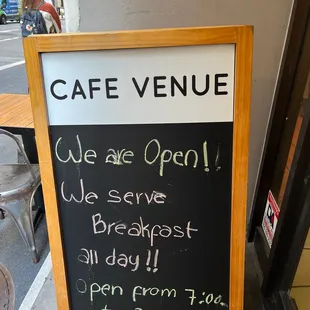 CAFE VENUE
We are Open!!
We serve
Breakfast
all day!!
Open from 7:00